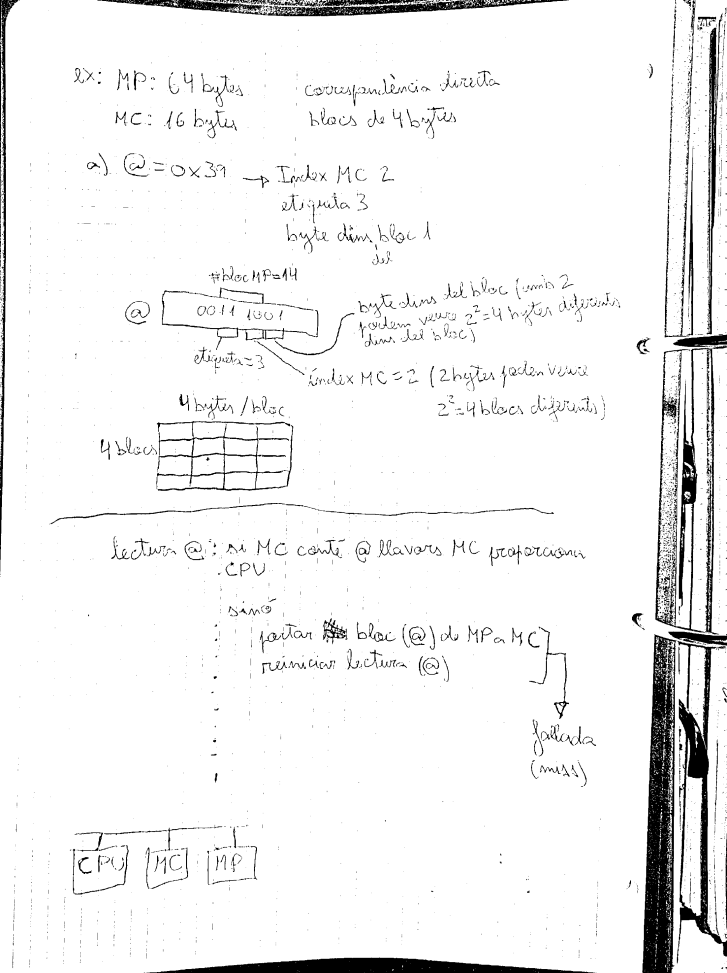 ex: MP: 64 bytes correspondència directa
MC: 16 bytes blocs de 4 bytes
a) @ = 0x39 → Index MC 2
etiqueta 3
byte dins bloc 1
del
#bloc MP=14
@ 0011 1001
byte dins del bloc (amb 2
podem veure 2²=4 bytes diferents
dins del bloc)
etiqueta=3
índex MC = 2 (2 bytes poden veure
2²=4 blocs diferents)
4 bytes / bloc
4 blocs
lectura @: si MC conté @ llavors MC proporciona
CPU
sinó
portar bloc (@) de MP a MC
reiniciar lectura (@)
fallada
(miss)
CPU MC MP